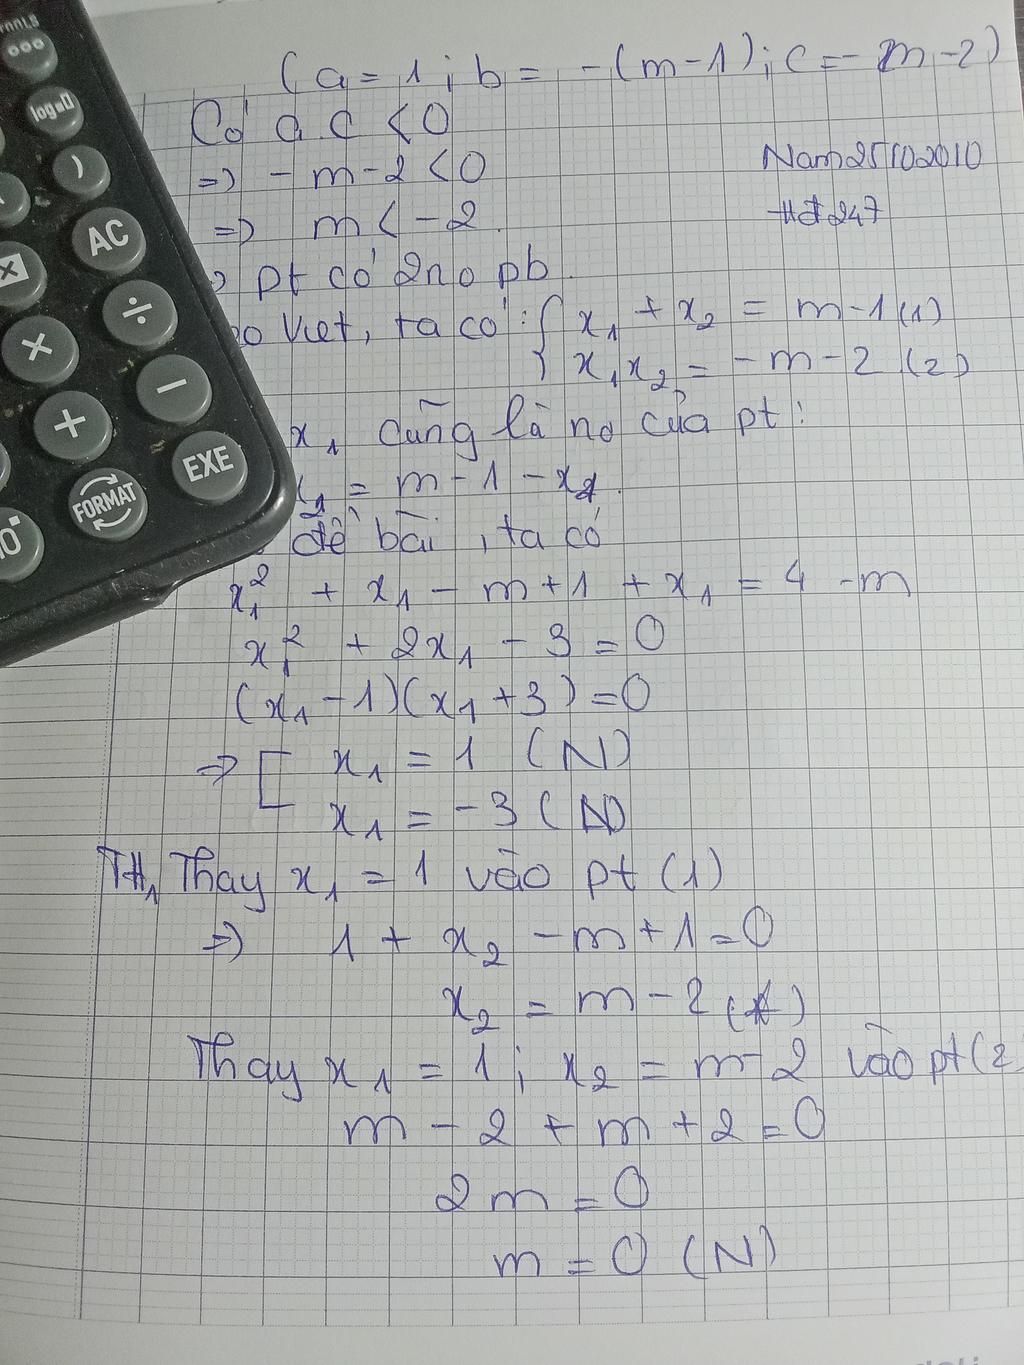 TOOLS
log▪□
)
AC
×
÷
×
−
+
EXE
FORMAT
( a = 1 ; b = -(m-1); c = -m-2)
Có a c < 0
=> -m-2 < 0
Nam25102010
=> m < -2
#đ247
pt có 2no pb.
Viet, ta có: { x₁ + x₂ = m-1 (1)
x₁x₂ = -m-2 (2)
x₁ cũng là no của pt:
= m-1-x₂.
đề bài, ta có
x₁² + x₁ - m+1 + x₁ = 4 -m
x₁² + 2x₁ - 3 = 0
(x₁ - 1)(x₁ + 3) = 0
=> [ x₁ = 1 (N)
x₁ = -3 (N)
TH₁ Thay x₁ = 1 vào pt (1)
=> 1 + x₂ - m + 1 = 0
x₂ = m - 2 (*)
Thay x₁ = 1 ; x₂ = m-2 vào pt(2
m - 2 + m + 2 = 0
2m = 0
m = 0 (N)